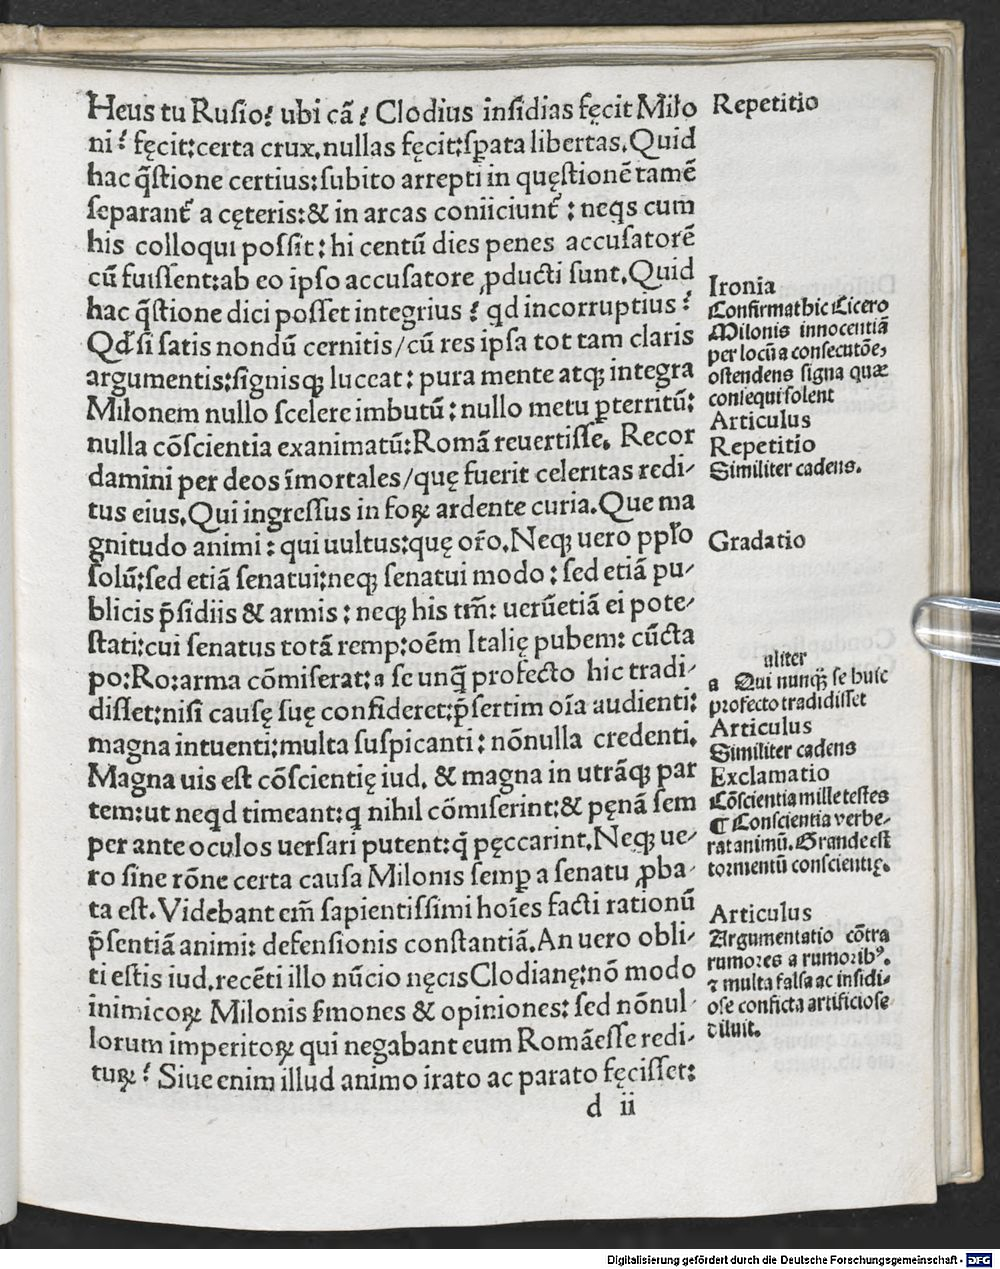 Heus tu Rusio? ubi cã? Clodius insidias fęcit Milo
ni? fęcit: certa crux. nullas fęcit: sꝑata libertas. Quid
hac q̃stione certius: subito arrepti in quęstionẽ tamẽ
separant̃ a cęteris: & in arcas coniiciunt̃: neq̢s cum
his colloqui possit: hi centũ dies penes accusatorẽ
cũ fuissent: ab eo ipso accusatore ꝓducti sunt. Quid
hac q̃stione dici posset integrius? qd incorruptius?
Qđ si satis nondũ cernitis/cũ res ipsa tot tam claris
argumentis: signisqꝫ luceat: pura mente atqꝫ integra
Milonem nullo scelere imbutũ: nullo metu ꝑterritũ:
nulla cõscientia exanimatũ: Romã reuertisse. Recor
damini per deos ĩmortales/quę fuerit celeritas redi-
tus eius. Qui ingressus in foꝝ ardente curia. Que ma
gnitudo animi: qui uultus: quę or̃o. Neqꝫ uero pplo
solũ: sed etiã senatui: neqꝫ senatui modo: sed etiã pu-
blicis p̃sidiis & armis: neqꝫ his tm̃: uerũetiã ei pote-
stati: cui senatus totã remp: oẽm Italię pubem: cũcta
po: Ro: arma cõmiserat: a se unq̃ profecto hic tradi-
disset: nisi causę suę confideret: p̃sertim oĩa audienti:
magna intuenti: multa suspicanti: nõnulla credenti.
Magna uis est cõscientię iud. & magna in utrãqꝫ par
tem: ut neqd timeant: q nihil cõmiserint: & pęnã sem
per ante oculos uersari putent: q̃ pęccarint. Neqꝫ ue-
ro sine rõne certa causa Milonis semꝑ a senatu ꝓba-
ta est. Videbant em̃ sapientissimi hoĩes facti rationũ
p̃sentiã animi: defensionis constantiã. An uero obli-
ti estis iud. recẽti illo nũcio nęcis Clodianę: nõ modo
inimicoꝝ Milonis s̃mones & opiniones: sed nõnul-
lorum imperitoꝝ qui negabant eum Romãesse redi-
tuꝝ? Siue enim illud animo irato ac parato fęcisset:
d ii
Repetitio
Ironia
Confirmat hic Cicero
Milonis innocentiã
per locũ a consecutõe,
ostendens signa quæ
consequi solent
Articulus
Repetitio
Similiter cadens.
Gradatio
aliter
a Qui nunqꝫ se huic
profecto tradidisset
Articulus
Similiter cadens
Exclamatio
Cõscientia mille testes
¶ Conscientia verbe-
rat animũ. Grande est
tormentũ conscientię.
Articulus
Argumentatio cõtra
rumores a rumoribꝰ.
⁊ multa falsa ac insidi-
ose conficta artificiose
diluit.
Digitalisierung gefördert durch die Deutsche Forschungsgemeinschaft - DFG